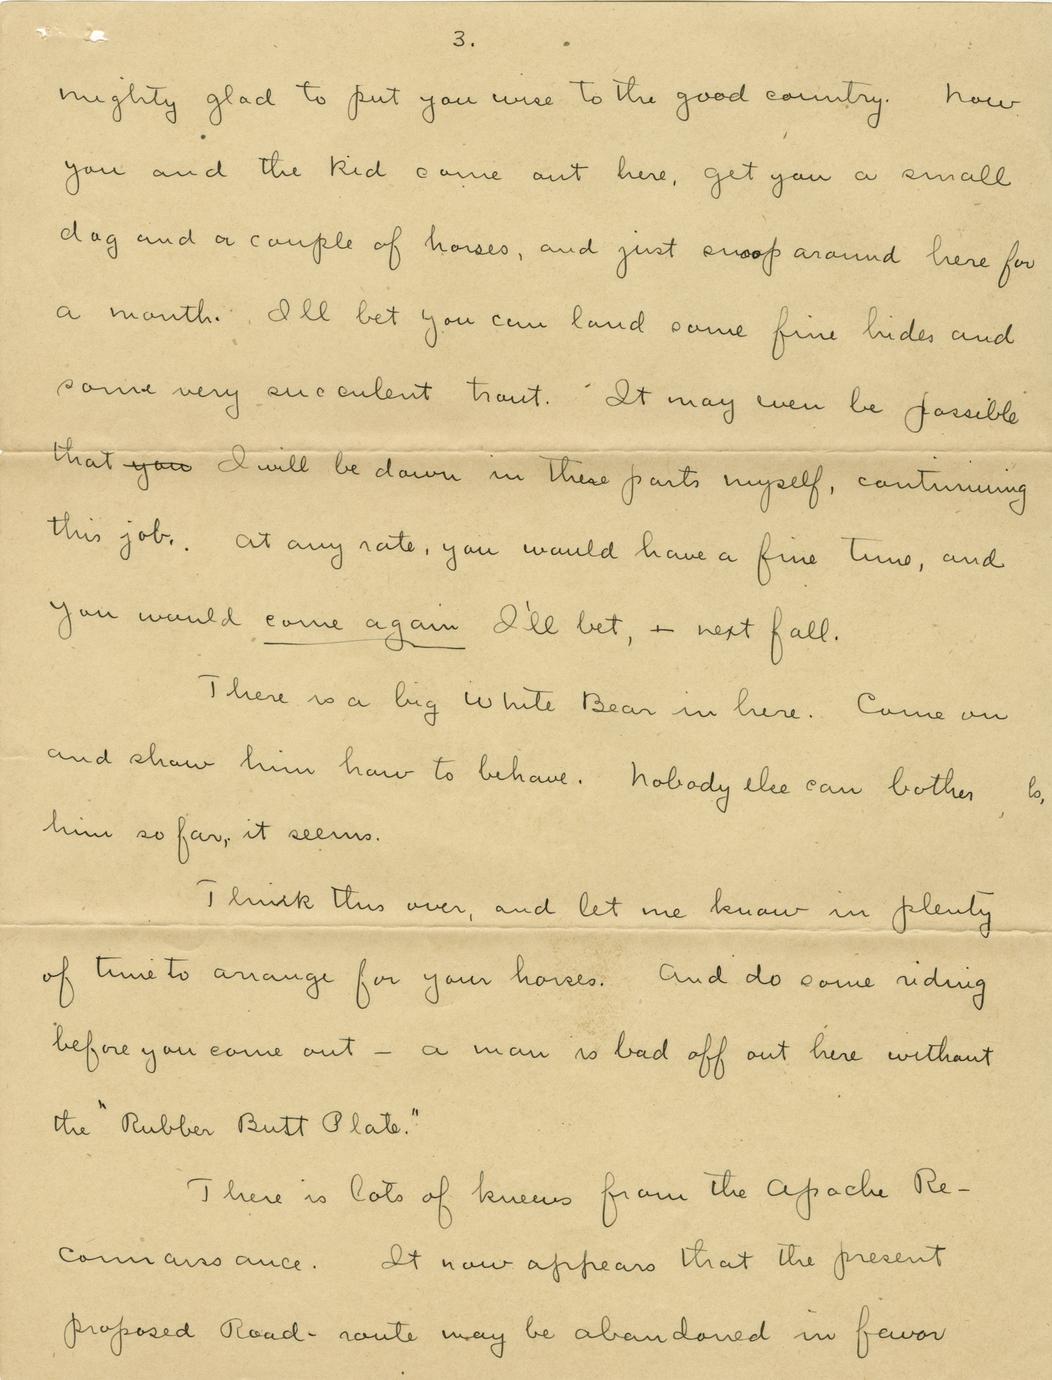 3.
mighty glad to put you wise to the good country. Now
you and the kid come out here, get you a small
dog and a couple of horses, and just snoop around here for
a month. I'll bet you can land some fine hides and
some very succulent trout. It may even be possible
that you I will be down in these parts myself, continuing
this job. At any rate, you would have a fine time, and
you would come again I'll bet, + next fall.
There is a big White Bear in here. Come on
and show him how to behave. Nobody else can bother
him so far, it seems.
Think this over, and let me know in plenty
of time to arrange for your horses. And do some riding
before you come out — a man is bad off out here without
the "Rubber Butt Plate."
There is lots of knews from the Apache Re-
connaissance. It now appears that the present
proposed Road-route may be abandoned in favor